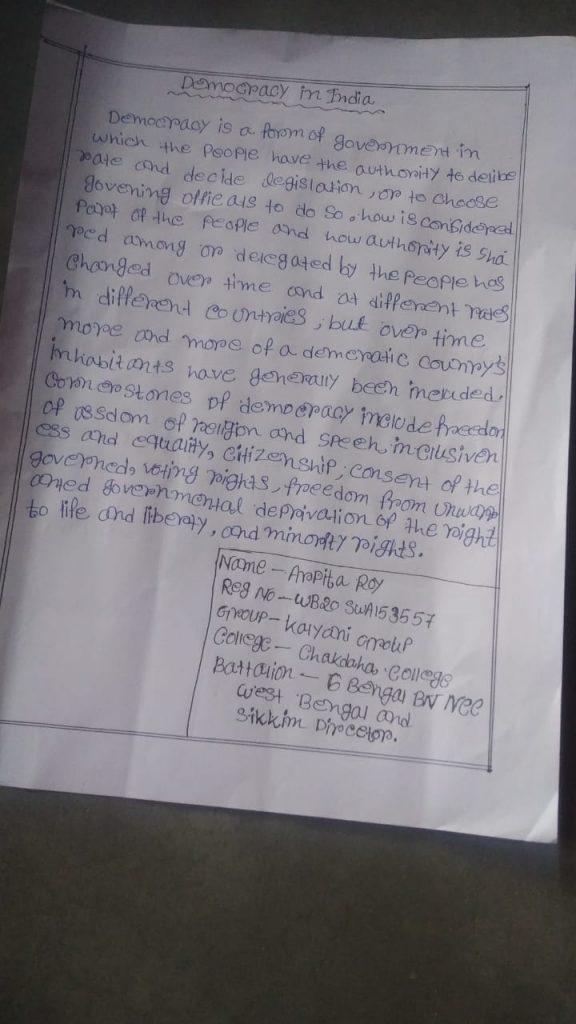 Democracy in India
Democracy is a form of government in
which the people have the authority to delibe
rate and decide legislation, or to choose
govening officats to do so. how is considered
Part of the people and how authority is sha
red among or delegated by the people has
changed over time and at different rates
in different countries, but over time
more and more of a demcratic counry's
inhabitants have generally been included.
cornerstones of democracy include freedon
of assdom of religion and speeh, inclusiven
ess and equality, citizenship, consent of the
governed, voting rights, freedom from unwarr
anted governmental deprivation of the right
to life and liberaty, and minority rights.
Name - Arpita Roy
Reg No - WB20 SWA153557
Group - Kalyani Group
College - Chakdaha College
Battalion - 6 Bengal BN NCC
West Bengal and
Sikkim Dircetor.